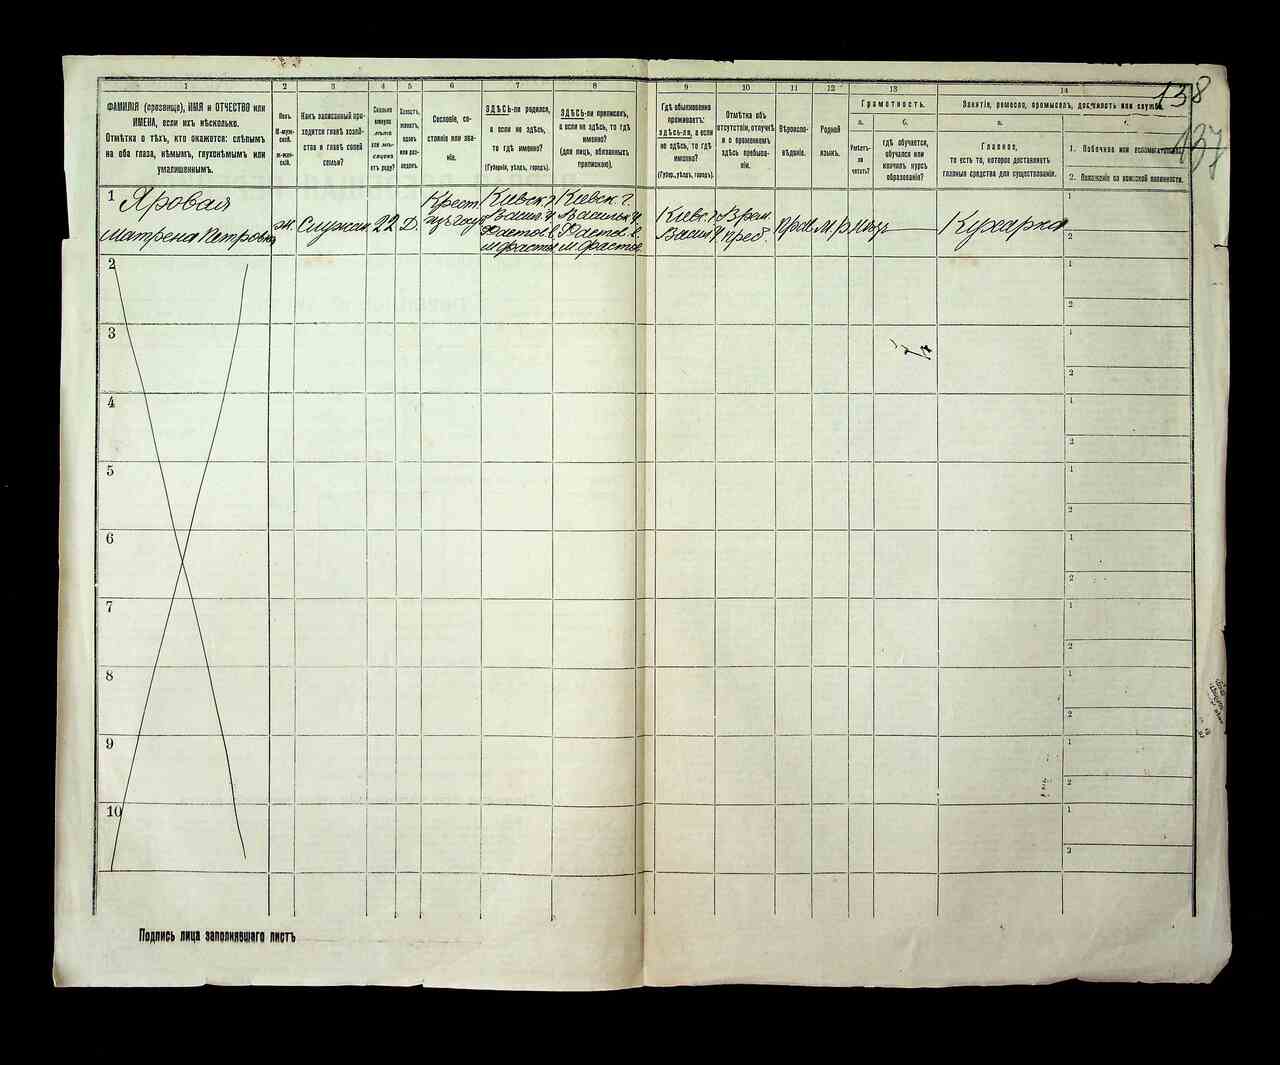 138
137
1 2 3 4 5 6 7 8 9 10 11 12 13 14
ФАМИЛІЯ (прозвище), ИМЯ и ОТЧЕСТВО или
ИМЕНА, если ихъ нѣсколько.
Отмѣтка о тѣхъ, кто окажется: слѣпымъ
на оба глаза, нѣмымъ, глухонѣмымъ или
умалишеннымъ.
Полъ.
М-муж-
ской.
Ж-жен-
скій.
Какъ записанный при-
ходится главѣ хозяй-
ства и главѣ своей
семьи?
Сколько
минуло
лѣтъ
или мѣ-
сяцевъ
отъ роду?
Холостъ,
женатъ,
вдовъ
или раз-
веденъ.
Сословіе, со-
стояніе или зва-
ніе.
ЗДѢСЬ-ли родился,
а если не здѣсь,
то гдѣ именно?
(Губернія, уѣздъ, городъ).
ЗДѢСЬ-ли приписанъ,
а если не здѣсь, то гдѣ
именно?
(для лицъ, обязанныхъ
припискою).
Гдѣ обыкновенно
проживаетъ:
здѣсь-ли, а если
не здѣсь, то гдѣ
именно?
(Губер., уѣздъ, городъ).
Отмѣтка объ
отсутствіи, отлучкѣ
и о временномъ
здѣсь пребыва-
ніи.
Вѣроиспо-
вѣданіе.
Родной
языкъ.
Грамотность.
а.
Умѣетъ-
ли
читать?
б.
гдѣ обучается,
обучался или
кончилъ курсъ
образованія?
Занятіе, ремесло, промыселъ, должность или служба.
а.
Главное,
то есть то, которое доставляетъ
главныя средства для существованія.
1. Побочное или вспомогательное.
2. Положеніе по воинской повинности.
1 Яровая
Матрена Петровна
ж. Служан. 22 Д.
Крест.
Кіевск. г.
Васил. у.
Фастов. в.
м. Фастов
Кіевск. г.
Васильк. у.
Фастов. в.
м. Фастов.
Кіевс. г.
Васил. у.
Врем.
преб.
Прав.
Кухарка
1
2
2
1
2
3
1
2
4
1
2
5
1
2
6
1
2
7
1
2
8
1
2
9
1
2
10
1
2
Подпись лица заполнявшаго листъ